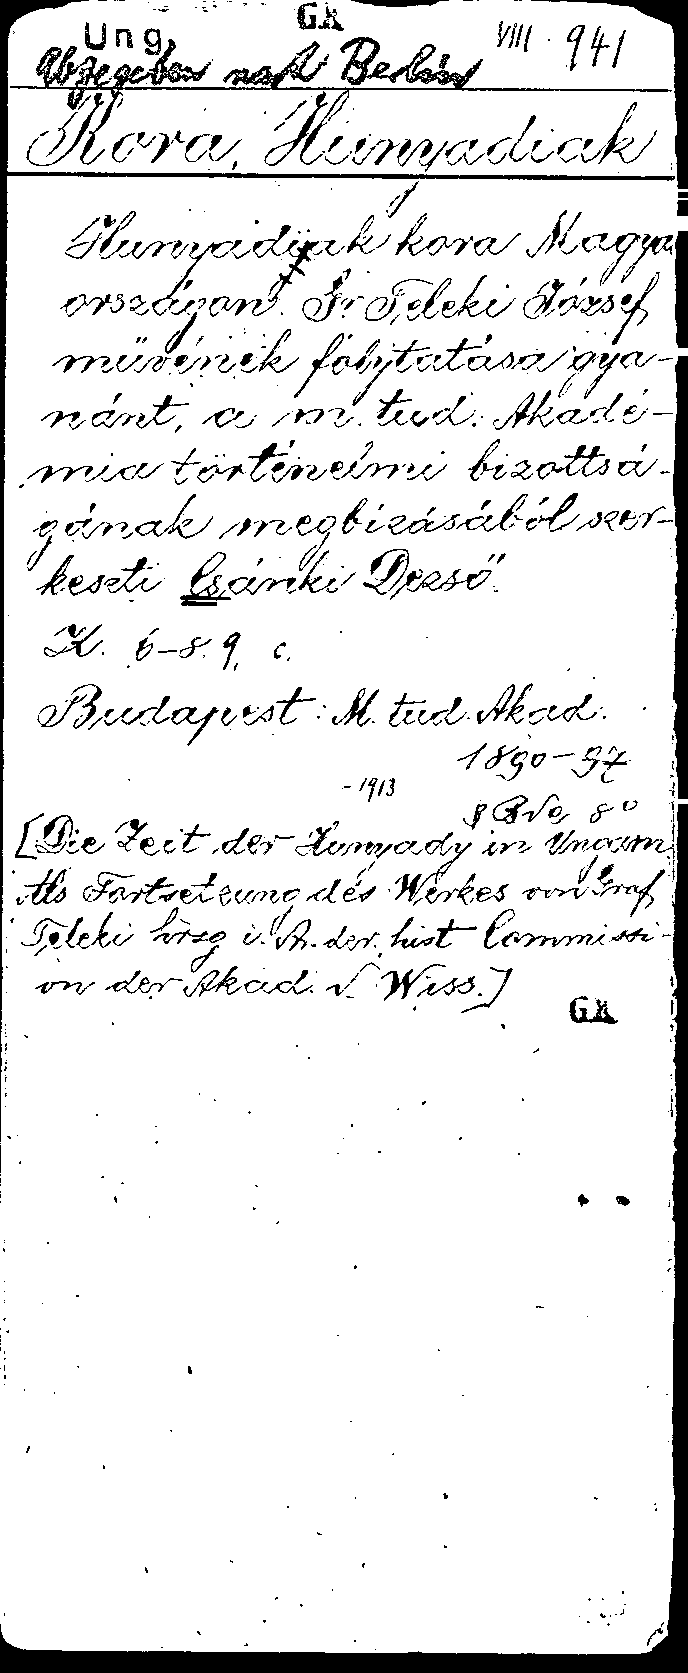 GK
Ung.
VIII. 941
Abgegeben nach Berlin
Kora, Hunyadiak
Hunyadiak kora Magyar
országon. Gr Teleki József
művének folytatása gya-
nánt, a m. tud. Akadé-
mia történelmi bizottsá-
gának megbizásából szer-
keszti Csánki Dezső.
K. 6-8. 9. c.
Budapest: M. tud. Akad.
1890-97
-1913
Bde 8°
[Die Zeit der Hunyady in Ungarn.
Als Fortsetzung des Werkes von Graf
Teleki hrsg i. A. der hist Commissi-
on der Akad. d. Wiss.]
GK